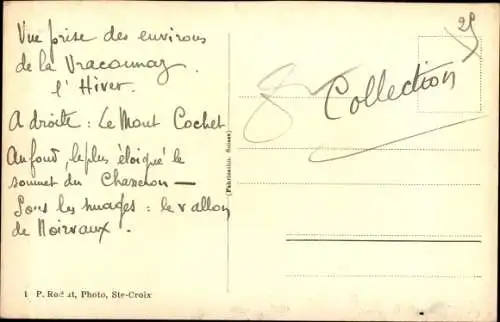 Vue prise des environs
de la Vraconnaz
l'Hiver.
A droite : Le Mont Cochet
Au fond, le plus éloigné le
sommet du Chasseron —
Sous les nuages : le vallon
de Noirvaux.
1 P. Rod t, Photo, Ste-Croix
(Fabrication Suisse)
25
Collection